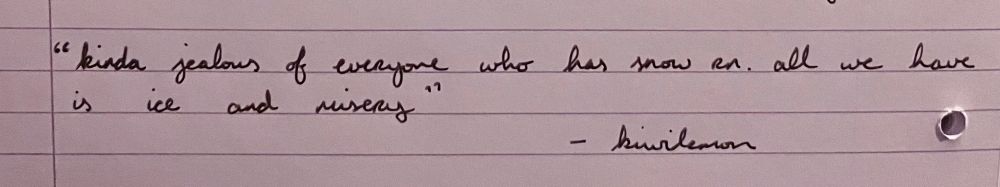 “kinda jealous of everyone who has snow rn. all we have
is ice and misery”
- kiwilemon